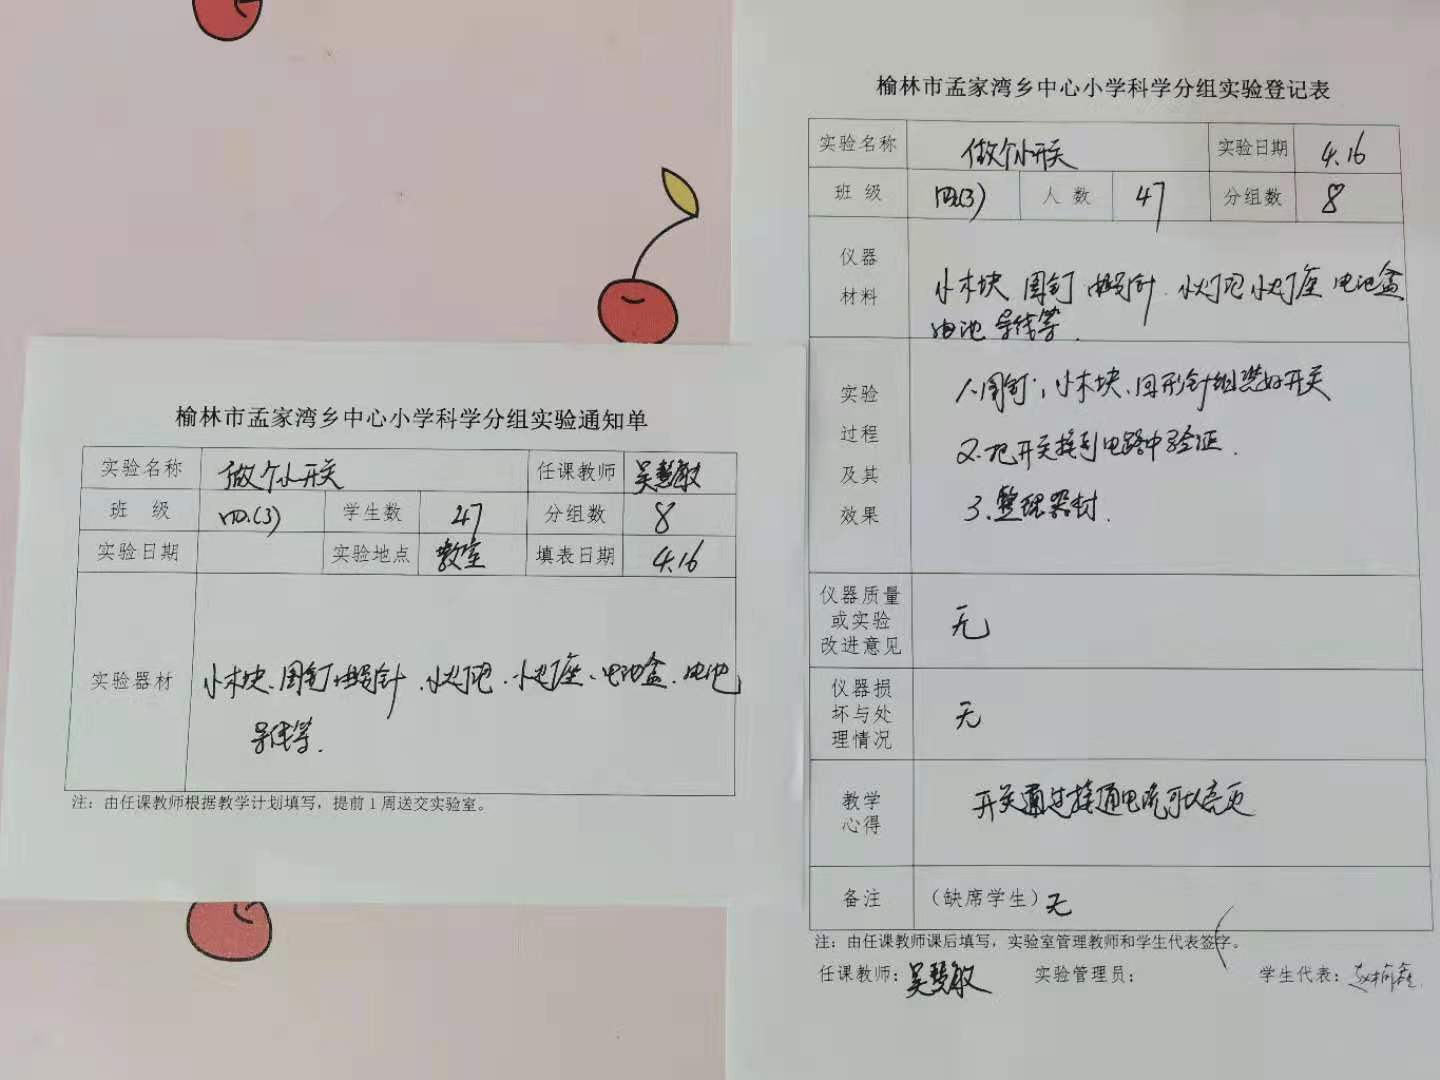 榆林市孟家湾乡中心小学科学分组实验通知单
实验名称 做个小开关 任课教师 吴慧敏
班 级 四.(3) 学生数 47 分组数 8
实验日期 实验地点 教室 填表日期 4.16
实验器材
小木块、图钉、曲别针、小灯泡、小灯座、电池盒、电池
导线等.
注：由任课教师根据教学计划填写，提前1周送交实验室。
榆林市孟家湾乡中心小学科学分组实验登记表
实验名称 做个小开关 实验日期 4.16
班 级 四.(3) 人 数 47 分组数 8
仪器
材料
小木块 图钉 曲别针. 小灯泡 小灯座 电池盒
电池 导线等.
实验
过程
及其
效果
1.图钉、小木块、回形针组装好开关
2.把开关接到电路中验证.
3.整理器材.
仪器质量
或实验
改进意见
无
仪器损
坏与处
理情况
无
教学
心得
开关通过接通电流可以
备注 （缺席学生）无
注：由任课教师课后填写，实验室管理教师和学生代表签字。
任课教师：吴慧敏 实验管理员： 学生代表：